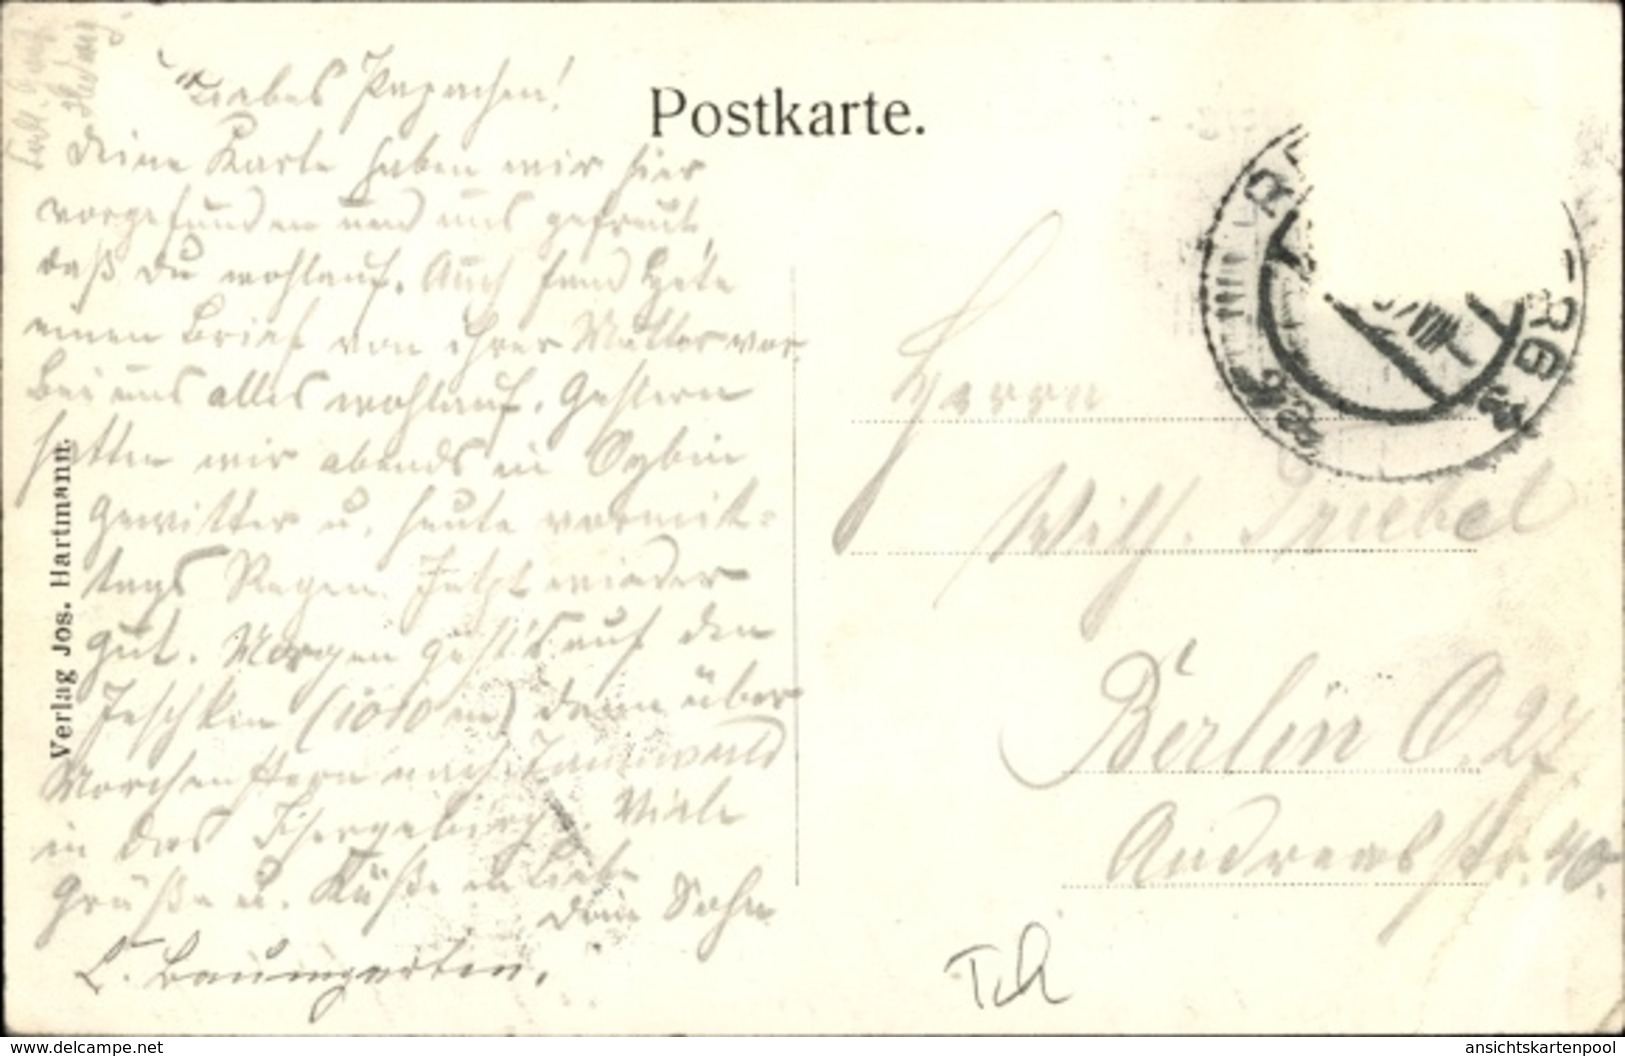 Liebes Papachen!
Deine Karte haben wir hier
vorgefunden und uns gefreut,
daß Du wohlauf. Auch fand Hete
einen Brief von ihrer Mutter vor.
Bei uns alles wohlauf. Gestern
hatten wir abends in Oybin
Gewitter u. heute vormit-
tags Regen. Jetzt wieder
gut. Morgen geht's auf den
Jeschken (1010 m) dann über
Morchenstern nach Tannwald
in das Isergebirge. Viele
Grüße u. Küsse in Liebe
Dein Sohn
L. Baumgarten.
Verlag Jos. Hartmann,
Postkarte.
Herrn
Wilh. Priebel
Berlin O. 27.
Andreasstr. 40.
Tch
www.delcampe.net
ansichtskartenpool